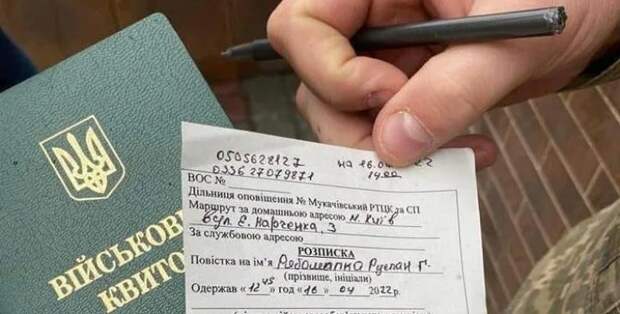 ВІЙСЬКОВИЙ
КВИТОК
0505628127
на 16.0
22
0336 27079871
14.00
ВОС №
Дільниця оповіщення № Мукачівський РТЦК та СП
Маршрут за домашньою адресою м. Київ
вул. Є. Харченка, 3
За службовою адресою
РОЗПИСКА
Повістка на ім'я Руслан Г.
(прізвище, ініціали)
Одержав "12 45" год "16" 04 2022р.